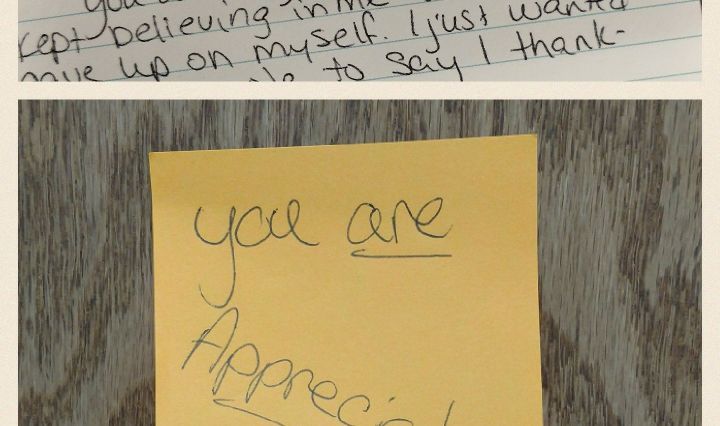 you
kept believing in me
give up on myself. I just wanted
to say I thank-
you are
Appreci